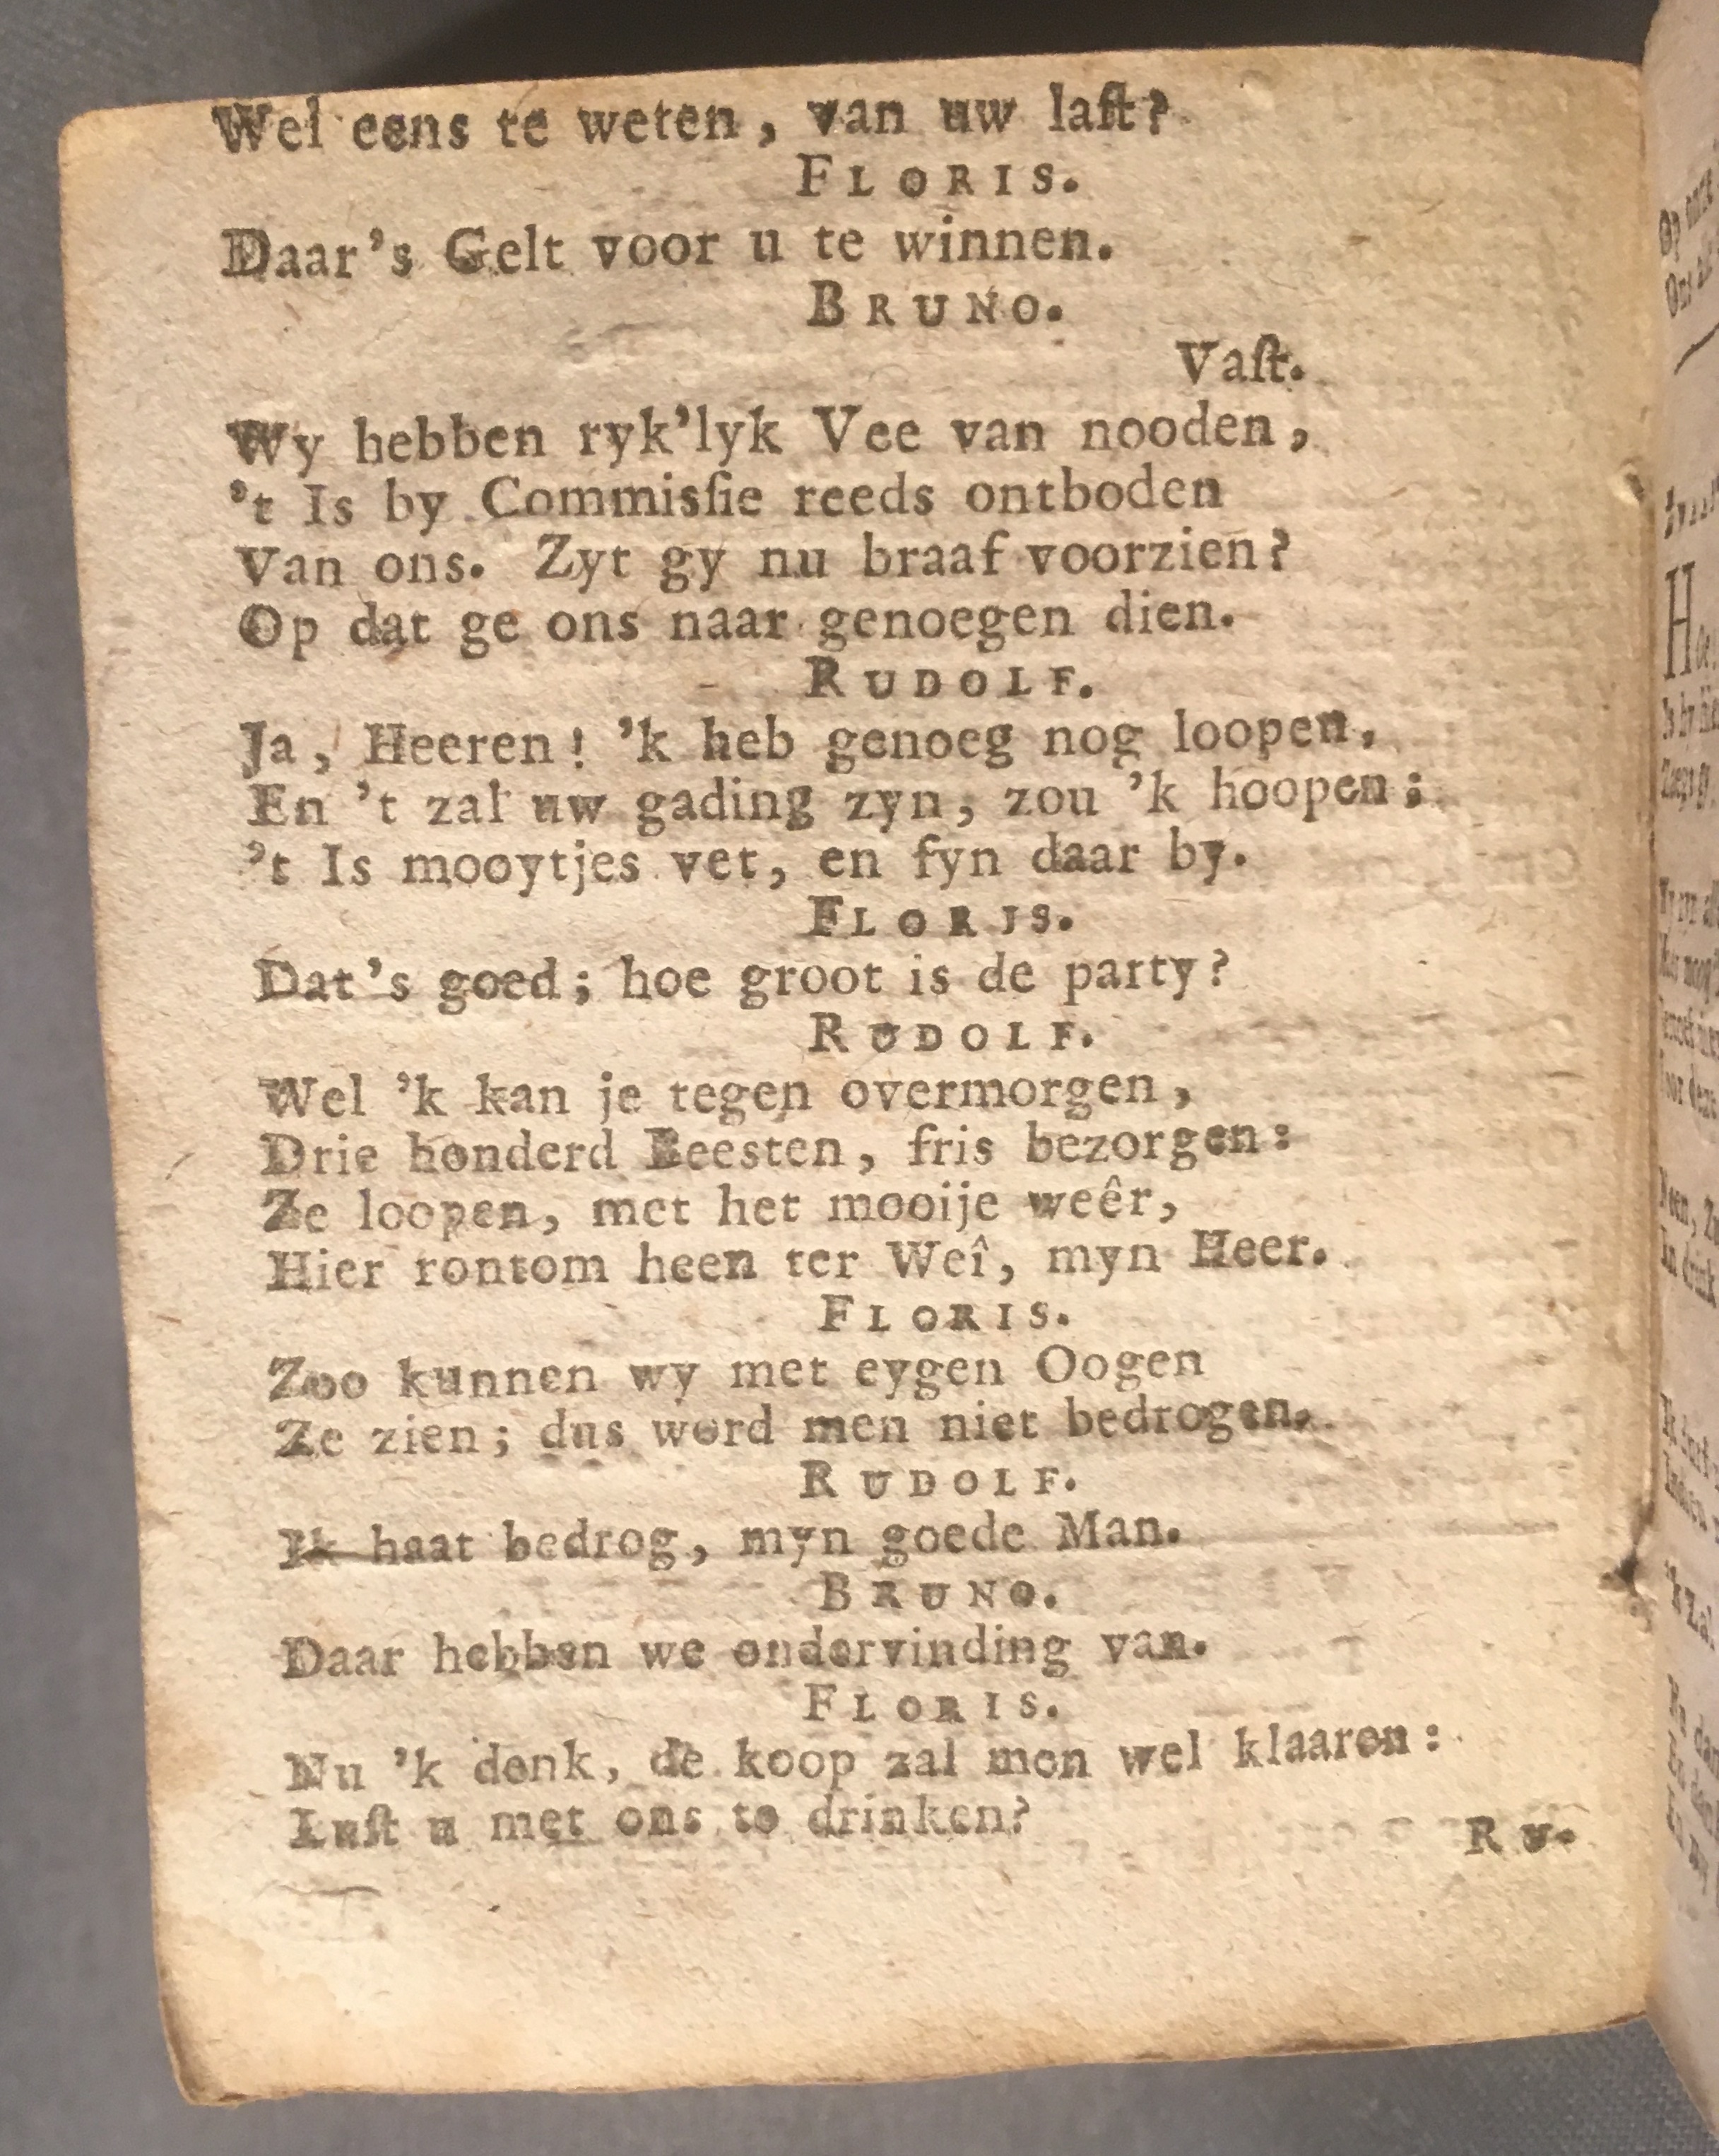 Wel eens te weten, van uw laſt?
FLORIS.
Daar's Gelt voor u te winnen.
BRUNO.
Vaſt.
Wy hebben ryk'lyk Vee van nooden,
't Is by Commisſie reeds ontboden
Van ons. Zyt gy nu braaf voorzien?
Op dat ge ons naar genoegen dien.
RUDOLF.
Ja, Heeren! 'k heb genoeg nog loopen,
En 't zal uw gading zyn, zou 'k hoopen;
't Is mooytjes vet, en fyn daar by.
FLORJS.
Dat's goed; hoe groot is de party?
RUDOLF.
Wel 'k kan je tegen overmorgen,
Drie honderd Beesten, fris bezorgen:
Ze loopen, met het mooije weêr,
Hier rontom heen ter Weî, myn Heer.
FLORIS.
Zoo kunnen wy met eygen Oogen
Ze zien; dus word men niet bedrogen.
RUDOLF.
Ik haat bedrog, myn goede Man.
BRUNO.
Daar hebben we ondervinding van.
FLORIS.
Nu 'k denk, de koop zal men wel klaaren:
Luſt u met ons te drinken?
RU.